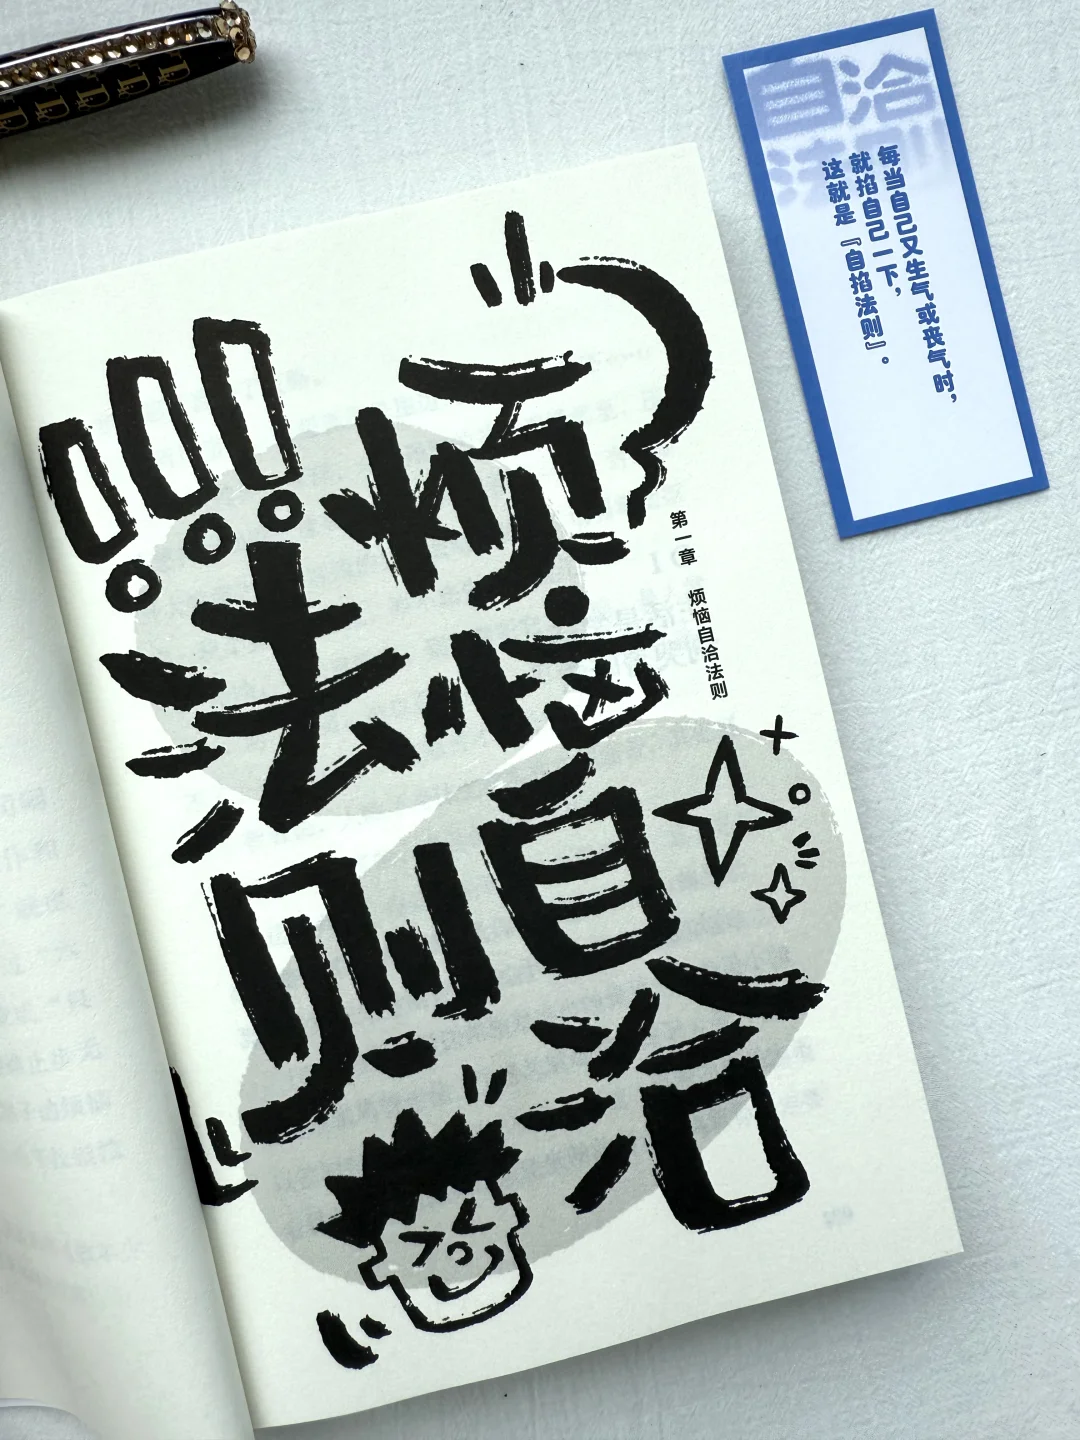 烦恼自洽
法则
第一章 烦恼自洽法则
自洽
法则
每当自己又生气或丧气时，
就掐自己一下，
这就是『自掐法则』。